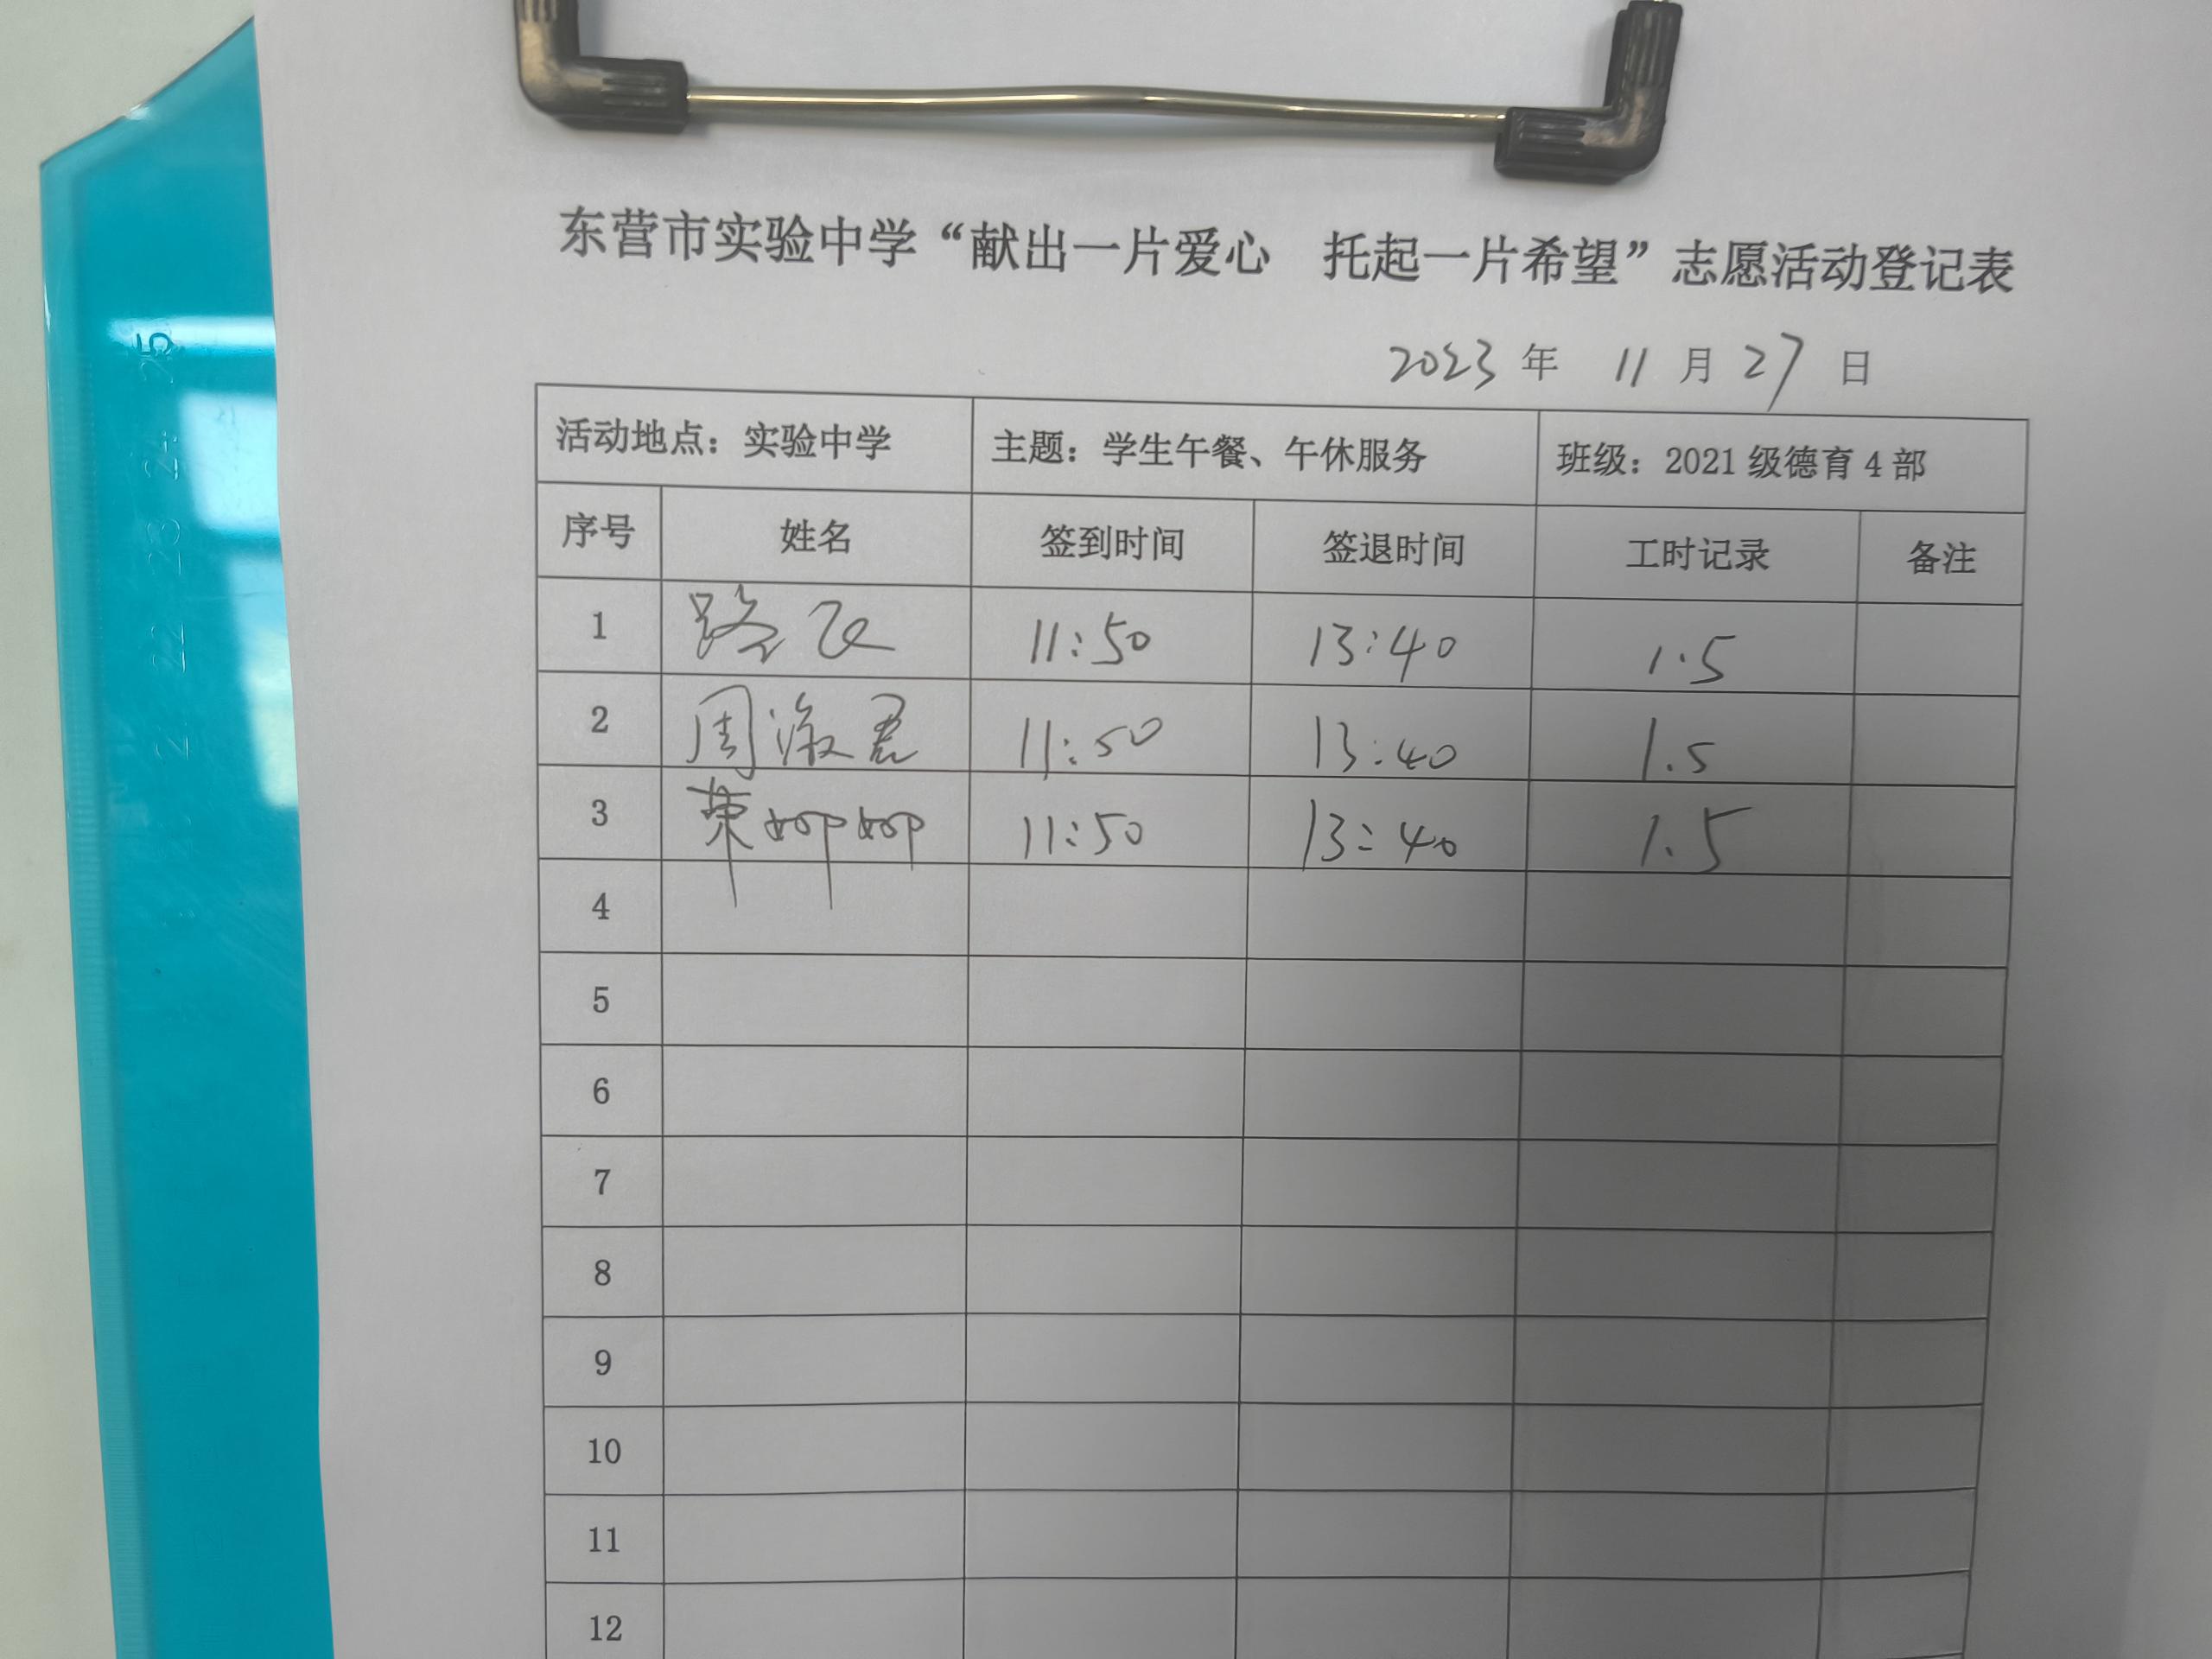 东营市实验中学“献出一片爱心 托起一片希望”志愿活动登记表
2023 年 11 月 27 日
活动地点：实验中学 主题：学生午餐、午休服务 班级：2021级德育4部
序号 姓名 签到时间 签退时间 工时记录 备注
1 路 11:50 13:40 1.5
2 周 君 11:50 13:40 1.5
3 11:50 13:40 1.5
4
5
6
7
8
9
10
11
12
25
24
23
22